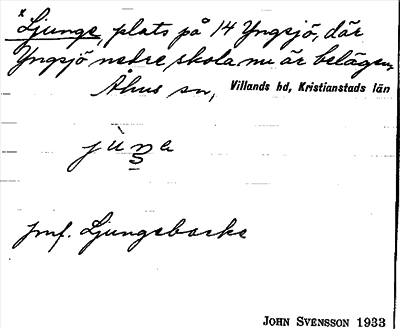 *Ljunge, plats på 14 Yngsjö, där
Yngsjö nedre skola nu är belägen,
Åhus sn, Villands hd, Kristianstads län
jùṉa
jmf. Ljungabacke
JOHN SVENSSON 1933